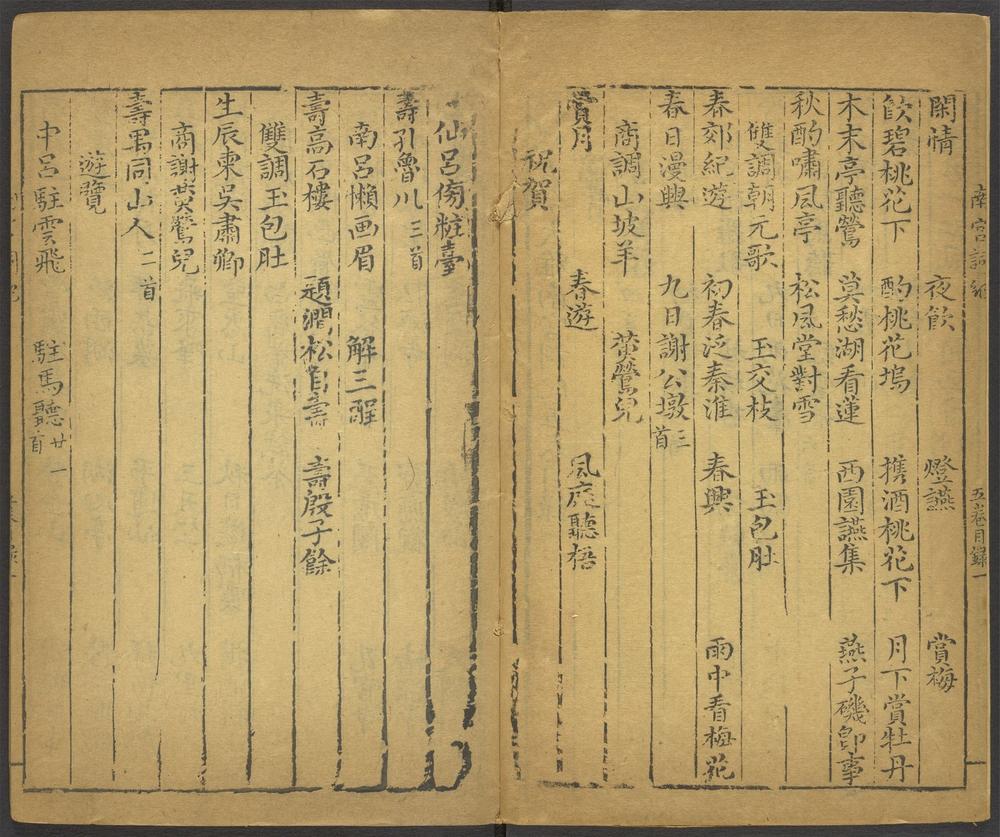 南宮詞紀
五卷目錄 一
閑情 夜飲 燈讌 賞梅
飲碧桃花下 酌桃花塢 携酒桃花下 月下賞牡丹
木末亭聽鶯 莫愁湖看蓮 西園讌集 燕子磯卽事
秋酌嘯風亭 松風堂對雪
雙調朝元歌 玉交枝 玉包肚
春郊紀遊 初春泛秦淮 春興 雨中看梅花
春日漫興 九日謝公墩三首
商調山坡羊 黄鶯兒
賞月 春遊 風庭聽梧
祝賀
仙呂傍粧臺
壽孔魯川三首
南呂懶画眉 解三酲
壽高石樓 題澗松自壽 壽殷子餘
雙調玉包肚
生辰柬吳肅卿
商調黄鶯兒
壽禺同山人二首
遊覽
中呂駐雲飛 駐馬聽廿一首